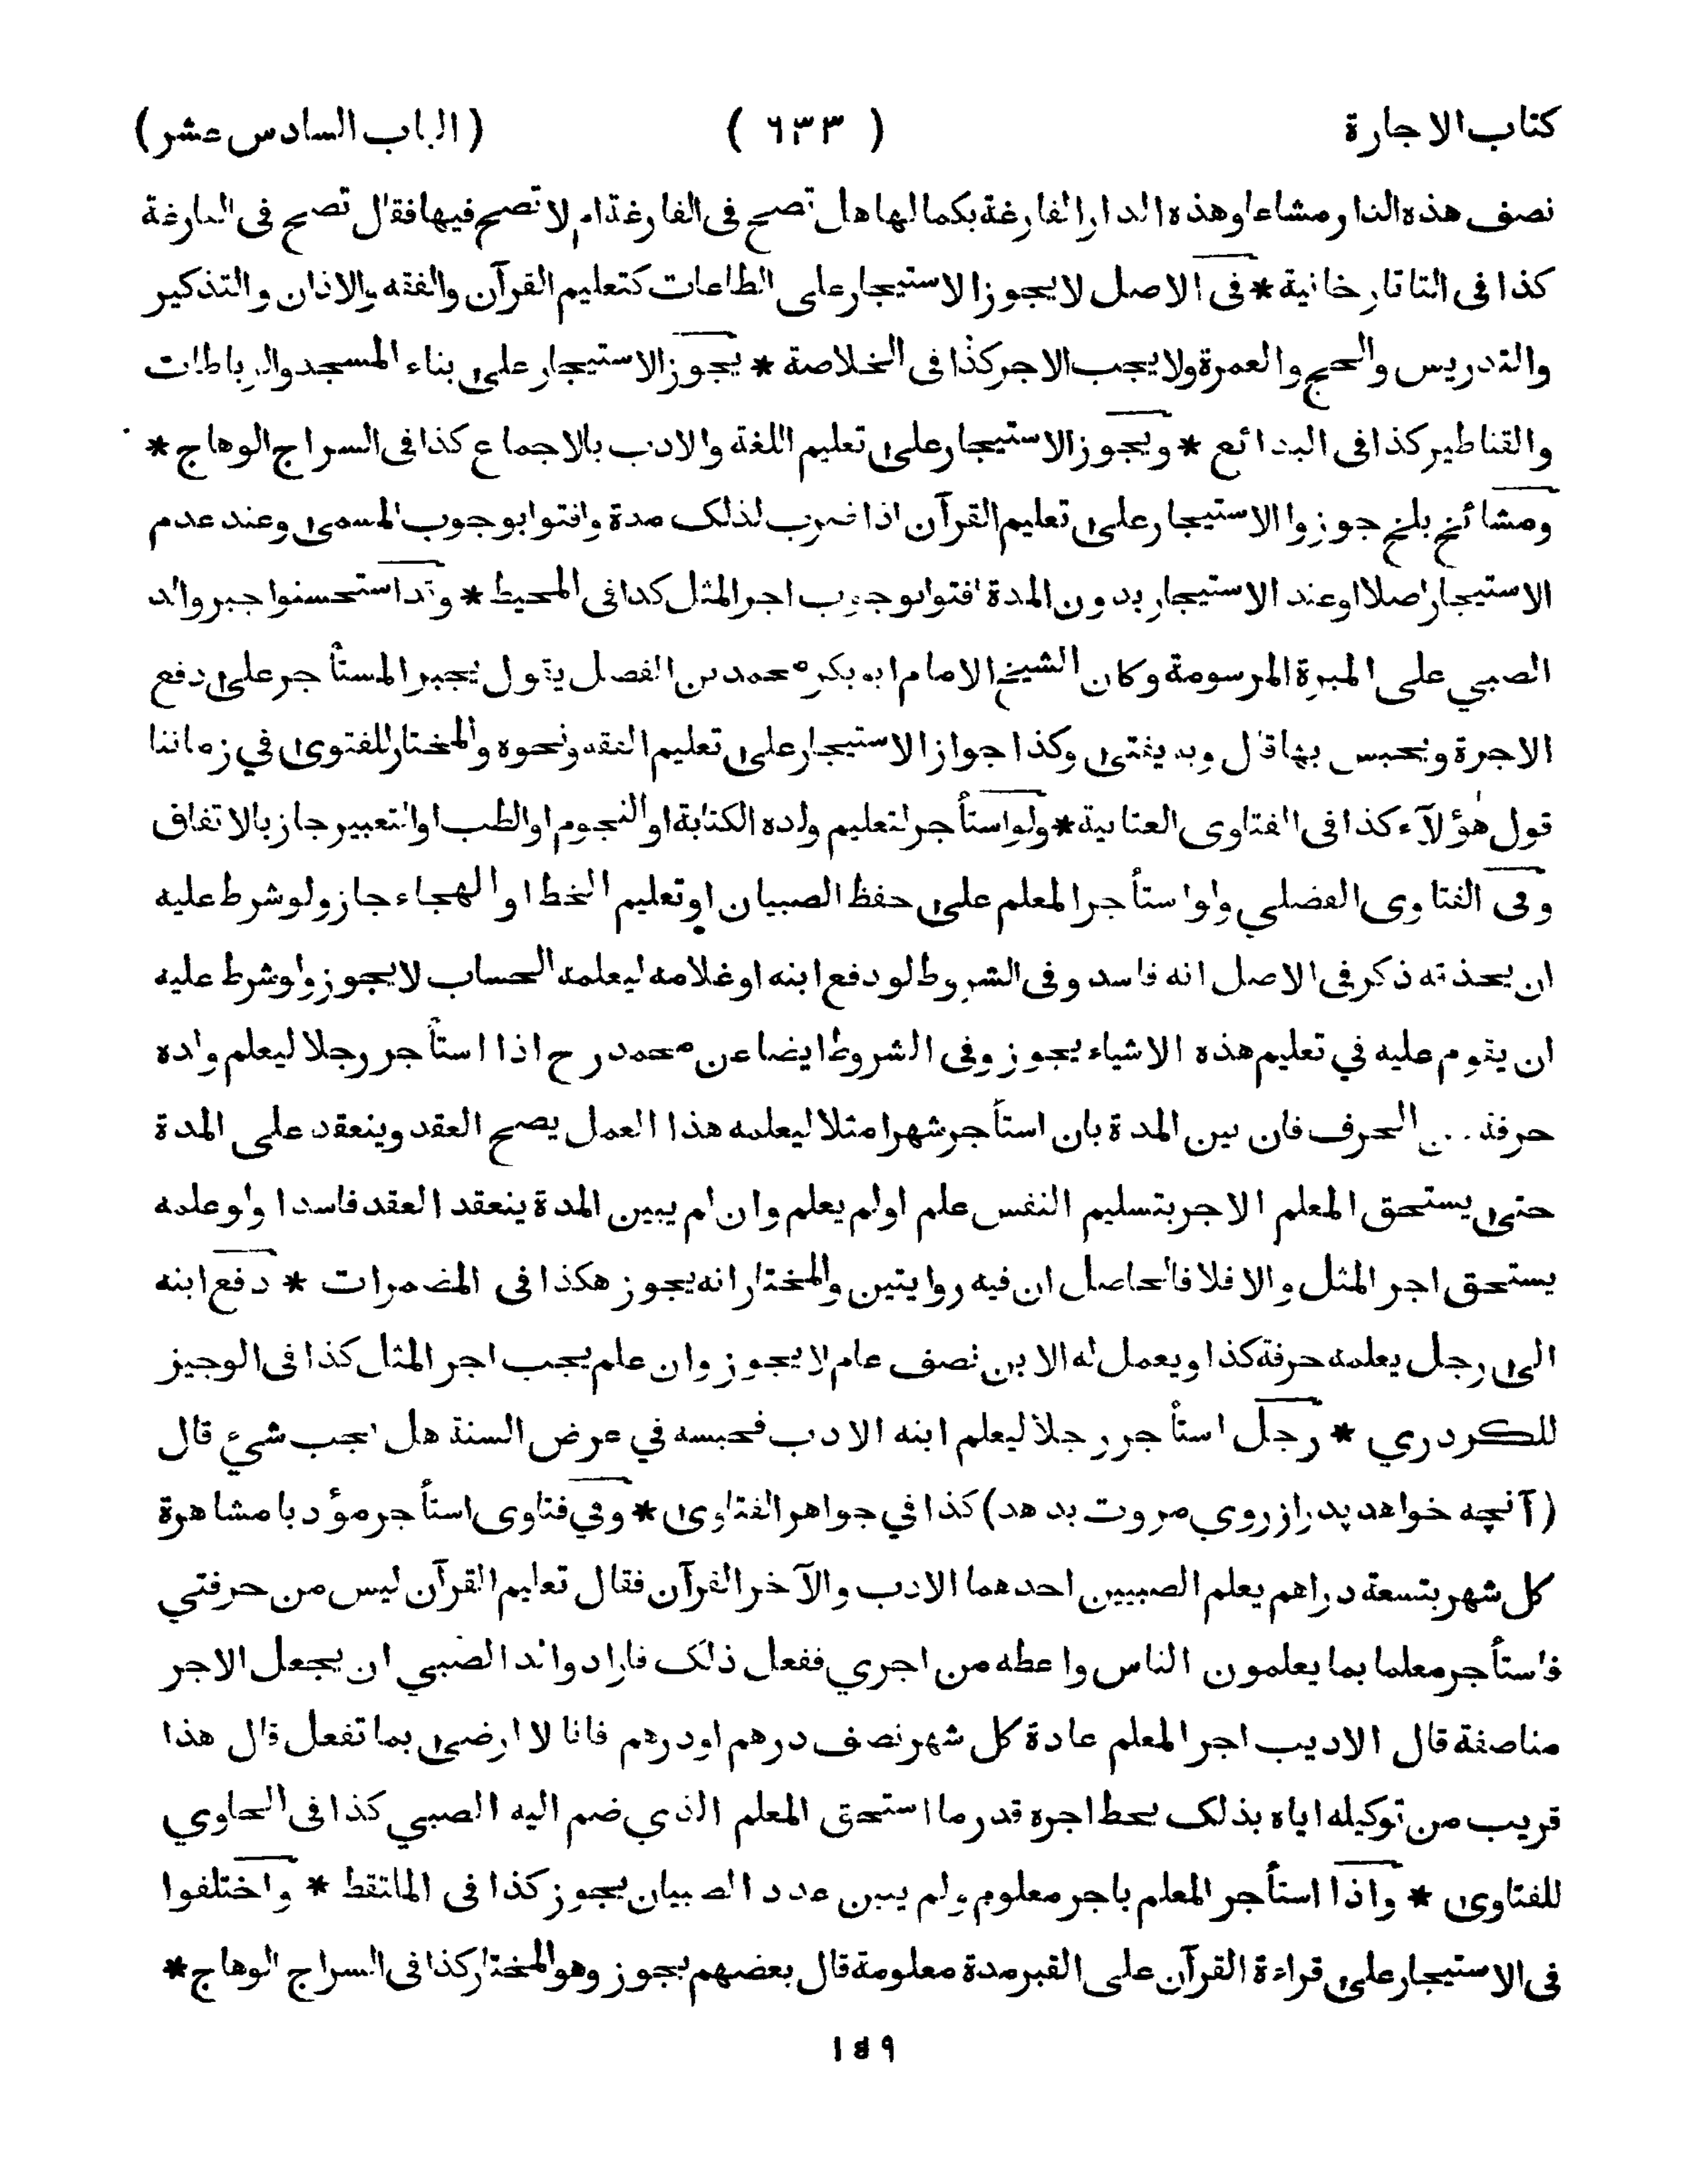 كتاب الاجارة ( ٦٣٣ ) ( الباب السادس عشر )
نصف هذه الدار مشاعا وهذه الدار الفارغة بكمالها هل تصح فى الفارغة ام لا تصح فيها فقال تصح فى الفارغة
كذا فى التاتارخانية * فى الاصل لا يجوز الاستيجار على الطاعات كتعليم القرآن والفقه والاذان والتذكير
والتدريس والحج والعمرة ولا يجب الاجر كذا فى الخلاصة * يجوز الاستيجار على بناء المسجد والرباطات
والقناطير كذا فى البدائع * ويجوز الاستيجار على تعليم اللغة والادب بالاجماع كذا فى السراج الوهاج *
ومشائخ بلخ جوزوا الاستيجار على تعليم القرآن اذا ضرب لذلك مدة وافتوا بوجوب المسمى وعند عدم
الاستيجار اصلا او عند الاستيجار بدون المدة افتوا بوجوب اجر المثل كذا فى المحيط * وقد استحسنوا جبر والد
الصبي على المبرة المرسومة وكان الشيخ الامام ابو بكر محمد بن الفضل يقول يجبر المستأجر على دفع
الاجرة ويحبس بها قال وبه يفتى وكذا جواز الاستيجار على تعليم الفقه ونحوه والمختار للفتوى في زماننا
قول هؤلآء كذا فى الفتاوى العتابية * ولو استأجر لتعليم ولده الكتابة او النجوم او الطب او التعبير جاز بالاتفاق
وفى الفتاوى الفضلي ولو استأجر المعلم على حفظ الصبيان او تعليم الخط او الهجاء جاز ولو شرط عليه
ان يحذقه ذكر فى الاصل انه فاسد وفى الشروط لو دفع ابنه او غلامه ليعلمه الحساب لا يجوز ولو شرط عليه
ان يقوم عليه في تعليم هذه الاشياء يجوز وفى الشروط ايضا عن محمد رح اذا استأجر رجلا ليعلم ولده
حرفة من الحرف فان بين المدة بان استأجر شهرا مثلا ليعلمه هذا العمل يصح العقد وينعقد على المدة
حتى يستحق المعلم الاجر بتسليم النفس علم او لم يعلم وان لم يبين المدة ينعقد العقد فاسدا ولو علمه
يستحق اجر المثل والا فلا فالحاصل ان فيه روايتين والمختار انه يجوز هكذا فى المضمرات * دفع ابنه
الى رجل يعلمه حرفة كذا ويعمل له الابن نصف عام لا يجوز وان علم يجب اجر المثل كذا فى الوجيز
للكردري * رجل استأجر رجلا ليعلم ابنه الادب فحبسه في عرض السنة هل يجب شيء قال
( آنچه خواهد پدر از روي مروت بدهد ) كذا في جواهر الفتاوى * وفي فتاوى استأجر مؤدبا مشاهرة
كل شهر بتسعة دراهم يعلم الصبيين احدهما الادب والآخر القرآن فقال تعليم القرآن ليس من حرفتي
فاستأجر معلما بما يعلمون الناس واعطه من اجري ففعل ذلك فاراد والد الصبي ان يجعل الاجر
مناصفة قال الاديب اجر المعلم عادة كل شهر نصف درهم او درهم فانا لا ارضى بما تفعل قال هذا
قريب من توكيله اياه بذلك يحط اجره قدر ما استحق المعلم الذي ضم اليه الصبي كذا فى الحاوي
للفتاوى * واذا استأجر المعلم باجر معلوم ولم يبين عدد الصبيان يجوز كذا فى الملتقط * واختلفوا
فى الاستيجار على قراءة القرآن على القبر مدة معلومة قال بعضهم يجوز وهو المختار كذا فى السراج الوهاج *
١٥٩